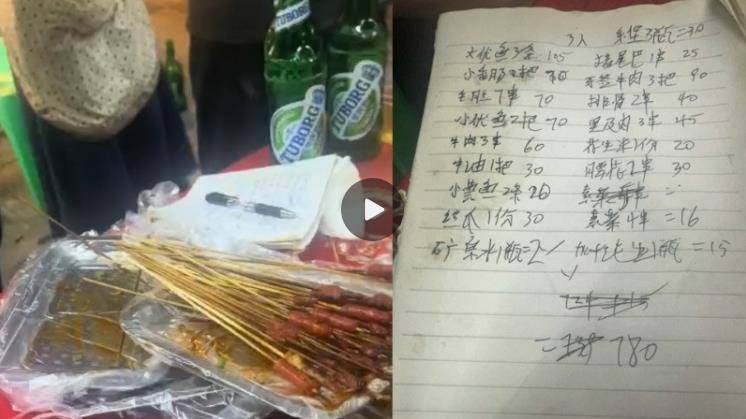 TUBORG
TUBORG
3人 乐堡3瓶=30
大优鱼3条 105 猪尾巴1串 25
小香肠2把 牙签牛肉3把 90
毛肚7串 70 排骨2串 40
小优鱼2把 70 里及肉3串 45
3串 60 花生米1份 20
牛油1把 30 腰花2串 30
小黄鱼2条 20
1份 30 素菜4串=16
矿泉水1瓶=2 1瓶=15
780